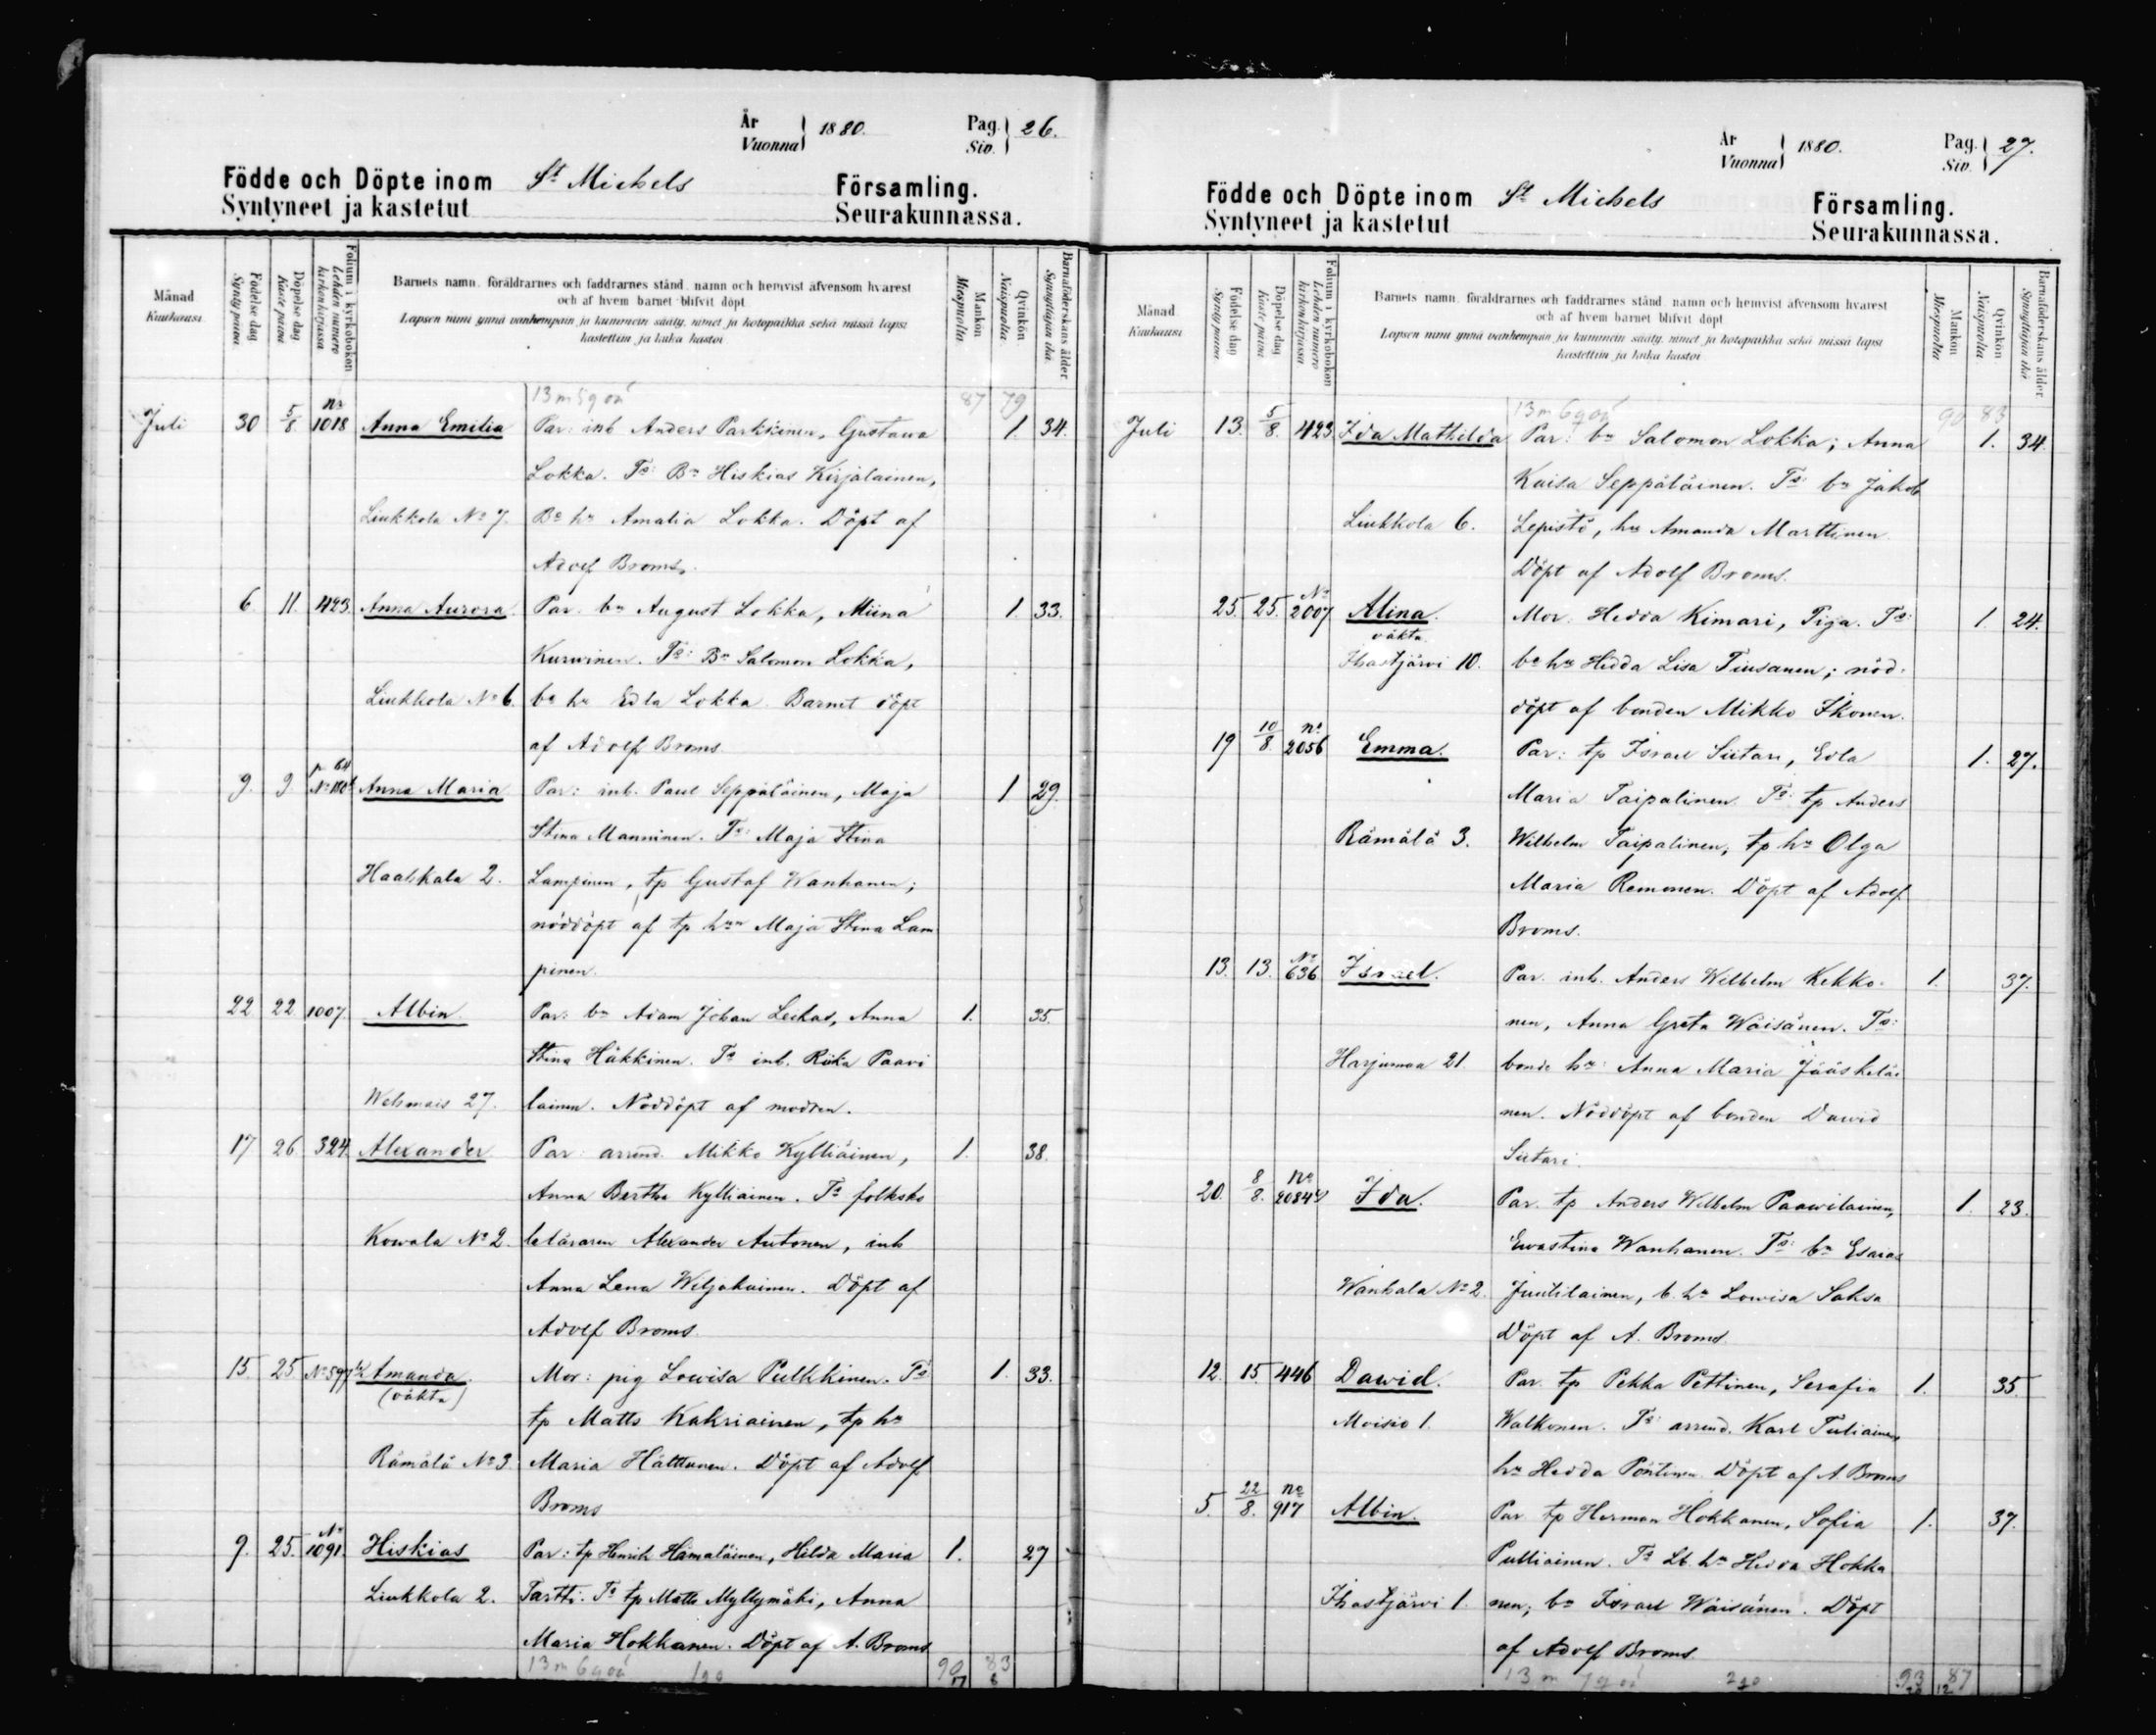 År
Vuonna 1880.
Pag.
Siv. 26.
Födde och Döpte inom St Michels Församling.
Syntyneet ja kastetut Seurakunnassa.
Månad
Kuukausi
Födelse dag
Syntypäivä
Döpelse dag
Kaste päivä
Folium i kyrkoboken
Lehden numero
kirkonkirjassa
Barnets namn, föräldrarnes och faddrarnes stånd, namn och hemvist äfvensom hvarest
och af hvem barnet blifvit döpt
Lapsen nimi ynnä vanhempain ja kummein sääty, nimet ja kotopaikka sekä missä lapsi
kastettiin ja kuka kastoi
Mankön
Miespuolia
Qvinkön
Naispuolia
Barnaföderskans ålder
Synnyttäjän ikä
87 79
Juli 30 5/8 no 1018 Anna Emilia Par: inh Anders Parkkinen, Gustava 1. 34.
Lokka. Ts: Bn Hiskias Kirjalainen,
Liukkola No 7. Be hr Amalia Lokka. Döpt af
Adolf Broms.
6. 11. 423. Anna Aurora Par. bn August Lokka, Miina 1. 33.
Kurvinen. Ts: Bn Salomon Lokka,
Liukkola No 6. be hr Edla Lokka. Barnet döpt
af Adolf Broms
9. 9. Anna Maria Par: inh. Paul Seppäläinen, Maja 1 29.
Stina Manninen. Ts: Maja Stina
Haatskala 2. Lampinen, tp Gustaf Wanhanen;
nöddöpt af tp hrn Maja Stina Lam
pinen.
22 22 1007 Albin Par: bn Adam Johan Leskas, Anna 1. 35.
Stina Häkkinen. Ts inh. Riika Paavi
Wehmais 27. lainen. Nöddöpt af modren.
17 26 324. Alexander Par arrend. Mikko Kylliäinen, 1. 38.
Anna Bertha Kylliäinen. Ts folksko
Kowala No 2. leläraren Alexander Autonen, inh
Anna Lena Weljakainen. Döpt af
Adolf Broms.
15. 25 Amanda Mor: pig Lowisa Pulkkinen. Ts 1. 33.
(oäkta) tp Matts Kakriainen, tp hr
Rämälä No 3. Maria Hälttunen. Döpt af Adolf
Broms
9. 25. No 1091. Hiskias Par: tp Henrik Hämäläinen, Hilda Maria 1. 27
Liukkola 2. Tartti. Ts tp Matts Myllymäki, Anna
Maria Hokkanen. Döpt af A. Broms
90 83
År
Vuonna 1880.
Pag.
Siv. 27.
Födde och Döpte inom St Michels Församling.
Syntyneet ja kastetut Seurakunnassa.
Månad
Kuukausi
Födelse dag
Syntypäivä
Döpelse dag
Kaste päivä
Folium i kyrkoboken
Lehden numero
kirkonkirjassa
Barnets namn, föräldrarnes och faddrarnes stånd, namn och hemvist äfvensom hvarest
och af hvem barnet blifvit döpt
Lapsen nimi ynnä vanhempain ja kummein sääty, nimet ja kotopaikka sekä missä lapsi
kastettiin ja kuka kastoi
Mankön
Miespuolia
Qvinkön
Naispuolia
Barnaföderskans ålder
Synnyttäjän ikä
90 83
Juli 13. 5/8. 423. Ida Mathilda Par: bn Salomon Lokka; Anna 1. 34.
Kaisa Seppäläinen. Ts: bn Jakob
Liukkola 6. Lepistö, hu Amanda Marttinen.
Döpt af Adolf Broms.
25. 25. No 2007 Alina. Mor: Hedda Kimari, Piga. Ts: 1. 24.
oäkta
Ihastjärvi 10. be hr Hedda Lisa Tiusanen; nöd-
döpt af bonden Mikko Ikonen.
19 10/8. no 2056 Emma. Par: tp Israel Siitari, Edla 1. 27.
Maria Taipalinen. Ts: tp Anders
Rämälä 3. Wilhelm Taipalinen, tp hr Olga
Maria Remonen. Döpt af Adolf
Broms.
13. 13. No 636 Israel. Par. inh. Anders Wilhelm Kekko- 1. 37.
nen, Anna Greta Wäisänen. Ts:
Harjumaa 21. bonde hr: Anna Maria Jääskeläi
nen. Nöddöpt af bonden Dawid
Siitari.
20. 8/8. No 2084 Ida. Par. tp Anders Wilhelm Paawilainen, 1. 23.
Ewastina Wanhanen. Ts: bn Esaias
Wanhala No 2. Juutilainen, b. hr Lowisa Saksa
Döpt af A. Broms.
12. 15. 446 Dawid. Par. tp Pekka Pettinen, Serafia 1. 35.
Moisio 1. Walkonen. Ts: arrend. Karl Tuliainen,
hr Hedda Pöntinen. Döpt af A. Broms
5. 22/8. no 917 Albin. Par. tp Herman Hokkanen, Sofia 1. 37.
Pulliainen. Ts Lb. hr Hedda Hokka
Ihastjärvi 1. nen; bn Israel Wäisänen. Döpt
af Adolf Broms.
93 87